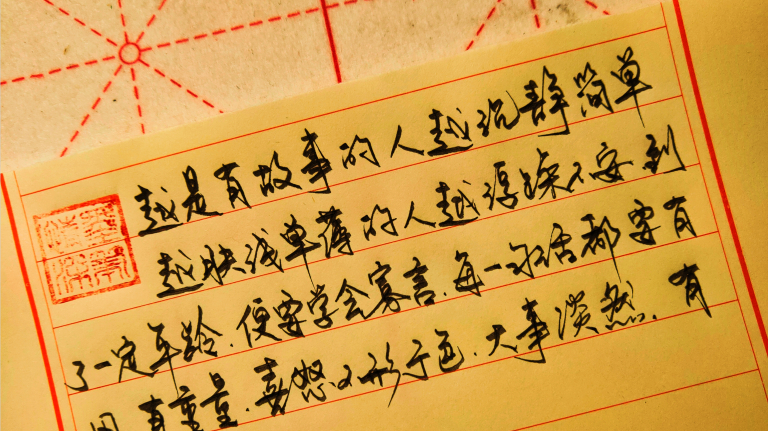 越是有故事的人越沉静简单
越肤浅单薄的人越浮躁不安.到
了一定年龄.便要学会寡言.每一句话都要有
用.有重量.喜怒不形于色.大事淡然.有